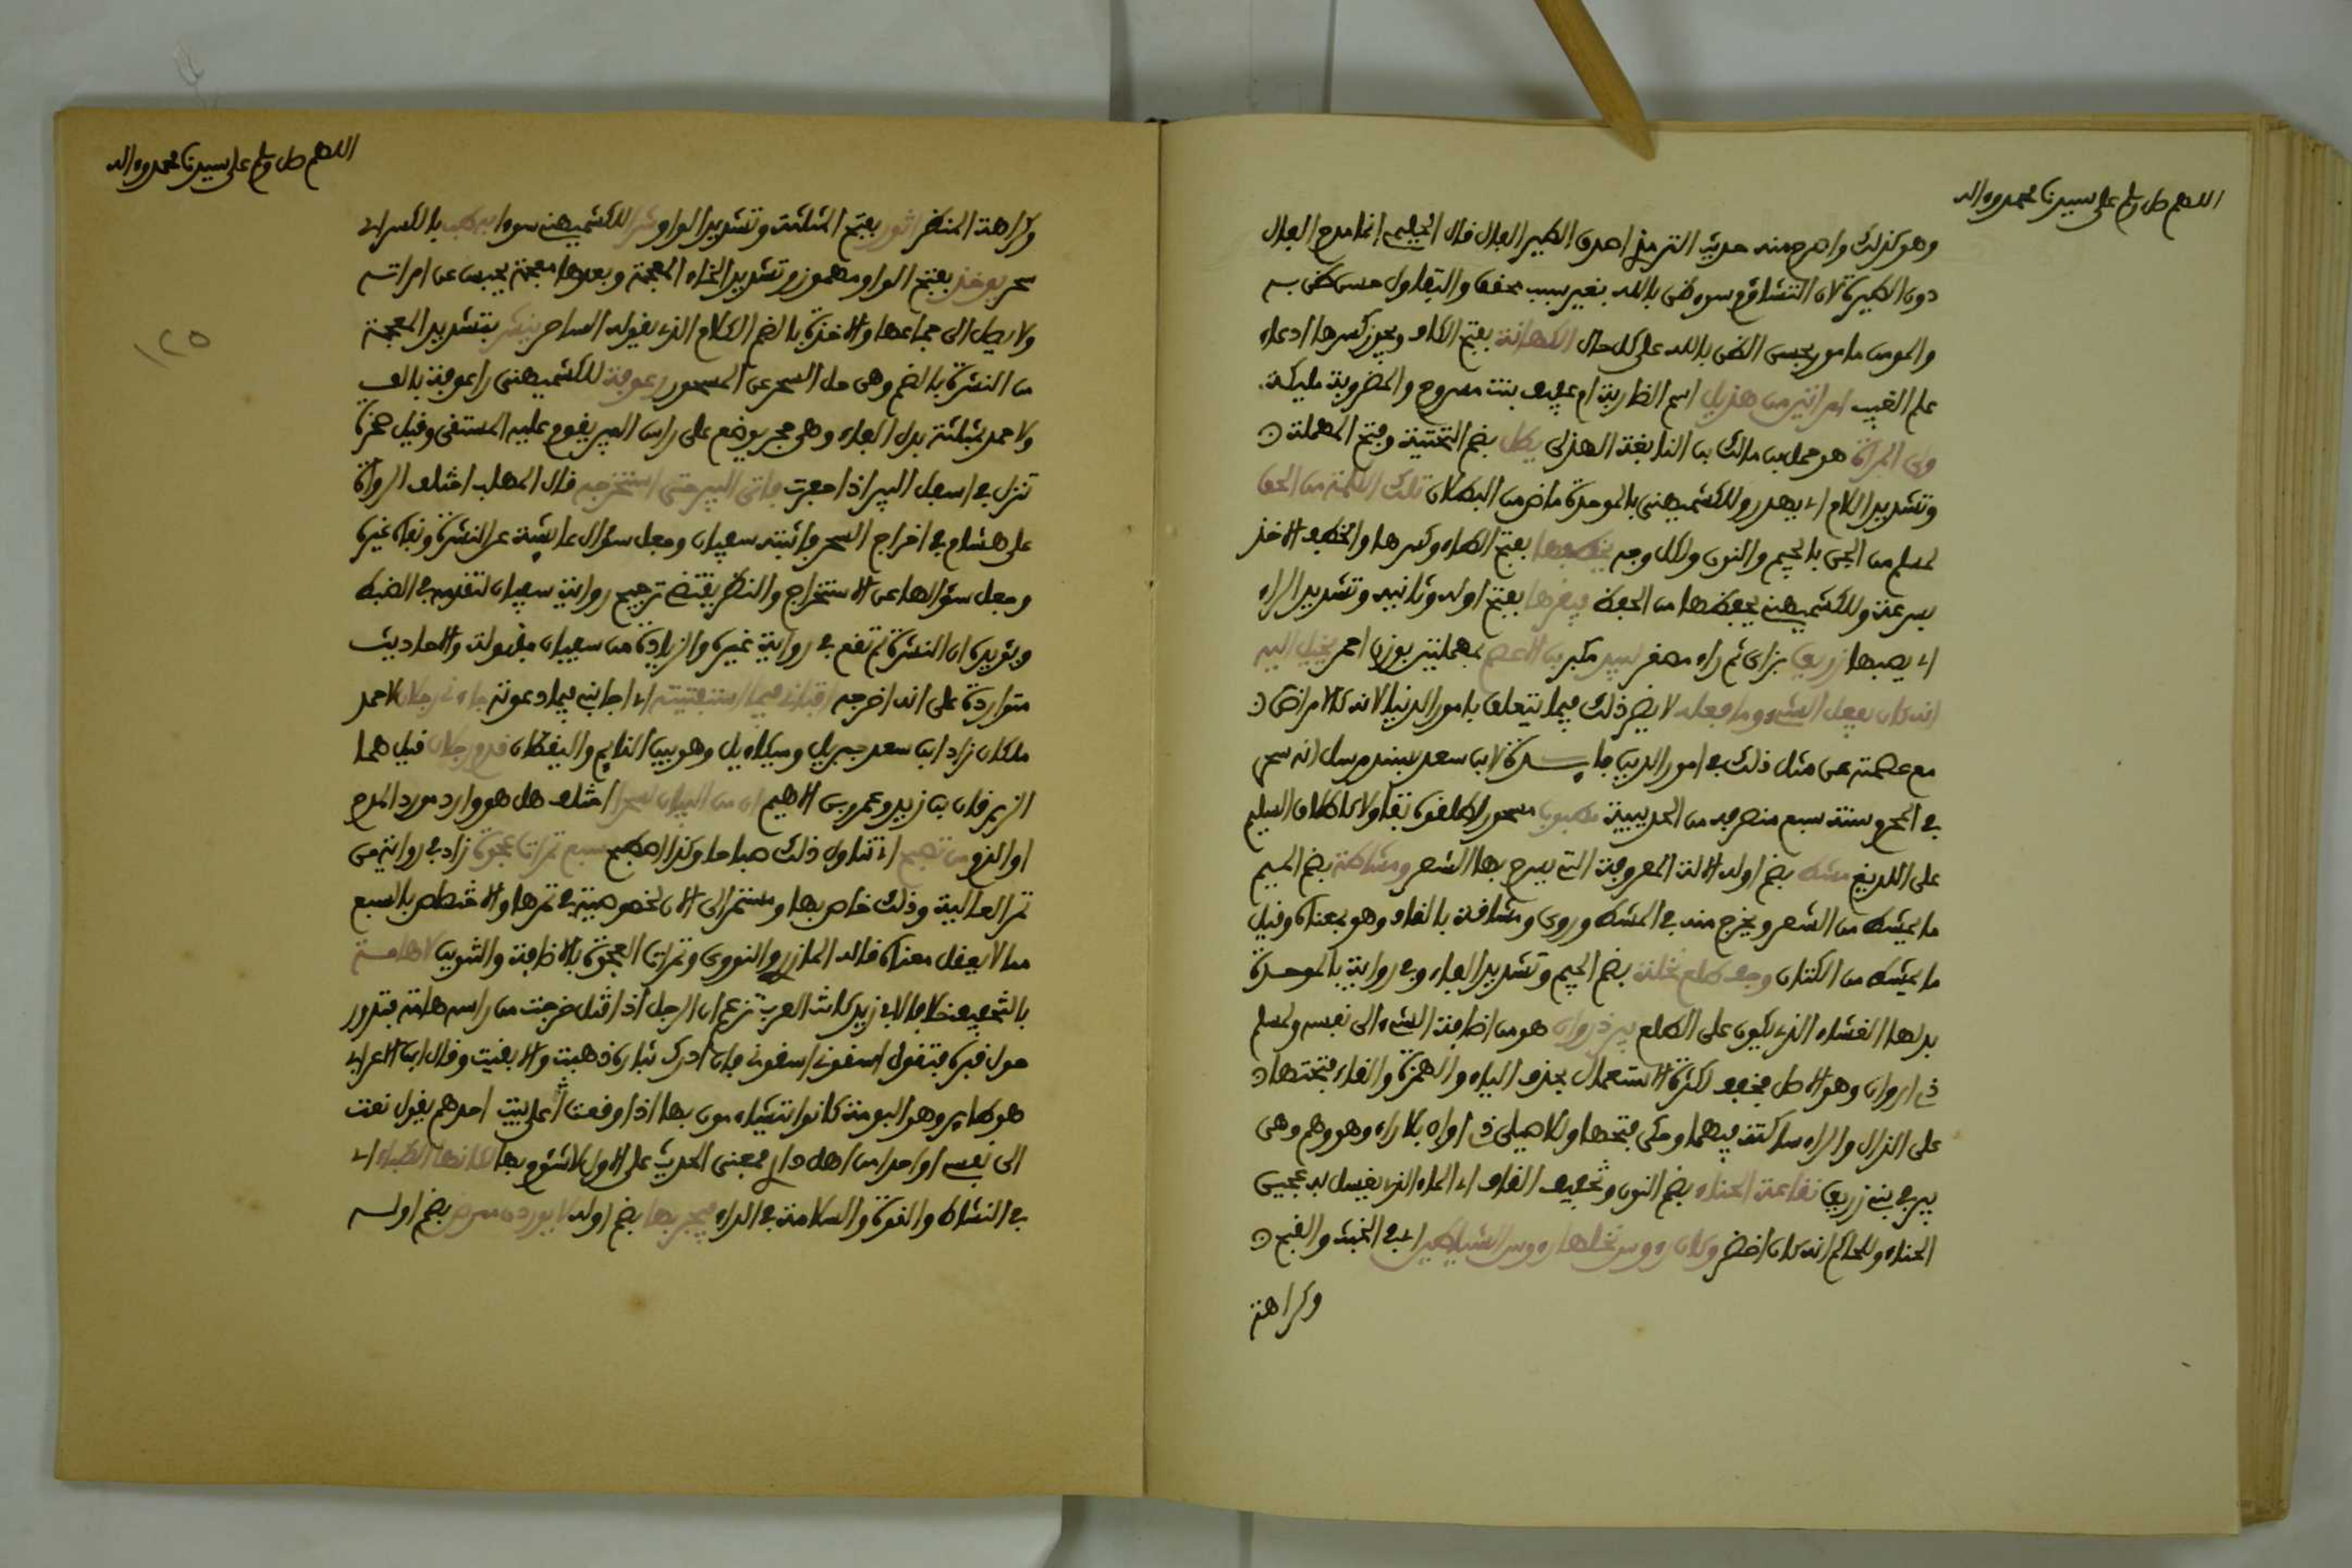 اللهم صل وسلم على سيدنا محمد وءاله
وهو كذلك واصرح منه حديث الترمذي اصدق الطير الفال قال الحليمي انما مدح الفال
دون الطيرة لان التشاؤم سوء ظن بالله بغير سبب محقق والتفاول حسن ظن به
والمومن مامور بحسن الظن بالله على كل حال الكهانة بفتح الكاف ويجوز كسرها ادعاء
علم الغيب امراتين من هذيل اسم الضاربة ام عفيف بنت مسروح والمضروبة مليكة
ولي المراة هو حمل بن مالك بن النابغة الهذلي يطل بضم التحتية وفتح المهملة
وتشديد اللام اي يهدر وللكشميهني بالموحدة ماض من البطلان تلك الكلمة من الحق
لمسلم من الجن بالجيم والنون ولكل وجه يخطفها بفتح الطاء وكسرها والخطف الاخذ
بسرعة وللكشميهني يحفظها من الحفظ فيقرها بفتح اوله وثانيه وتشديد الراء
اي يصبها زريق بزاي ثم راء مصغر لبيد مكبر بن الاعصم بمهملتين بوزن احمر يخيل اليه
انه كان يفعل الشيء وما فعله لا يضر ذلك فيما يتعلق بامور الدنيا لانه كالامراض
مع عصمته عن مثل ذلك في امور الدين فايدة لابن سعد بسند مرسل انه سحر
في المحرم سنة سبع منصرفه من الحديبية مطبوب مسحور اطلقوه تفاولا كاطلاق السليم
على اللديغ مشط بضم اوله الالة المعروفة التي يسرح بها الشعر ومشاطة بضم الميم
ما يمشط من الشعر ويخرج منه في المشط وروى ومشاقة بالقاف وهو بمعناه وقيل
ما يمشط من الكتان وجف طلع نخلة بضم الجيم وتشديد الفاء وفي رواية بالموحدة
بدلها الغشاء الذي يكون على الطلع بير ذروان هو من اضافة الشيء الى نفسه ولمسلم
ذي اروان وهو الاصل فخفف لكثرة الاستعمال بحذف الياء والهمزة والقاء فتحتها
على الذال والراء ساكنة فيهما وحكى فتحها وللاصيلي ذي اوان بلا راء وهو وهم وهي
بير في بني زريق نقاعة الحناء بضم النون وتخفيف القاف اي الماء الذي يغسل به عجين
الحناء وللحاكم انه كان اخضر وكان رءوس نخلها رءوس الشياطين اي في الخبث والقبح
وكراهة
اللهم صل وسلم على سيدنا محمد وءاله
١٢٥
وكراهة المنظر اثور بفتح المثلثة وتشديد الواو شرا للكشميهني سوءا طب بالكسر اي
سحر يوخذ بفتح الواو مهموز وتشديد الخاء المعجمة وبعدها معجمة يحبس عن امراته
ولا يصل الى جماعها والاخذة بالضم الكلام الذي يقوله الساحر ينشر بتشديد المعجمة
من النشرة بالضم وهي حل السحر عن المسحور رعوفة للكشميهني راعوفة بالف
ولاحمد بمثلثة بدل الفاء وهو حجر يوضع على راس البير يقوم عليه المستقي وقيل صخرة
تنزل في اسفل البير اذا حفرت فاتى البير حتى استخرجه قال المهلب اختلف الرواة
على هشام في اخراج السحر فاثبته سفيان وجعل سؤال عايشة عن النشرة ونفاه غيره
وجعل سؤالها عن الاستخراج والنظر يقتضي ترجيح رواية سفيان لتقدمه في الضبط
ويؤيده ان النشرة لم تقع في رواية غيره والزيادة من سفيان مقبولة والاحاديث
متواردة على انه اخرجه افتاني فيما استفتيته اي اجابني فيما دعوته جاءني رجلان لاحمد
ملكان زاد ابن سعد جبريل وميكاءيل وهو بين النايم واليقظان قدم رجلان قيل هما
الزبرقان بن زيد وعمرو بن الاهيم ان من البيان لسحرا اختلف هل هو وارد مورد المدح
او الذم من تصبح اي تناول ذلك صباحا وكذا اصطبح سبع تمرات عجوة زاد في رواية من
تمر العالية وذلك خاص بها ومستمر الى الان لخصوصية في تمرها والاختصاص بالسبع
مما لا يعقل معناه قاله المازري والنووي وتمرات العجوة بالاضافة والتنوين لا هامة
بالتخفيف خلافا لابي زيد كانت العرب تزعم ان الرجل اذا قتل خرجت من راسه هامة فتدور
حول قبره فتقول اسقوني اسقوني فان ادرك بثاره ذهبت والا بقيت وقال ابن الاعرابي
هو طاير وهو البومة كانوا يتشاءمون بها اذا وقعت على بيت احدهم يقول نعت
الى نفسي او احدا من اهل داري فمعنى الحديث على الاول لا شؤم بها كانها الظباء اي
في النشاط والقوة والسلامة في الداء فيجربها بضم اوله لا يوردن ممرض بضم اوله